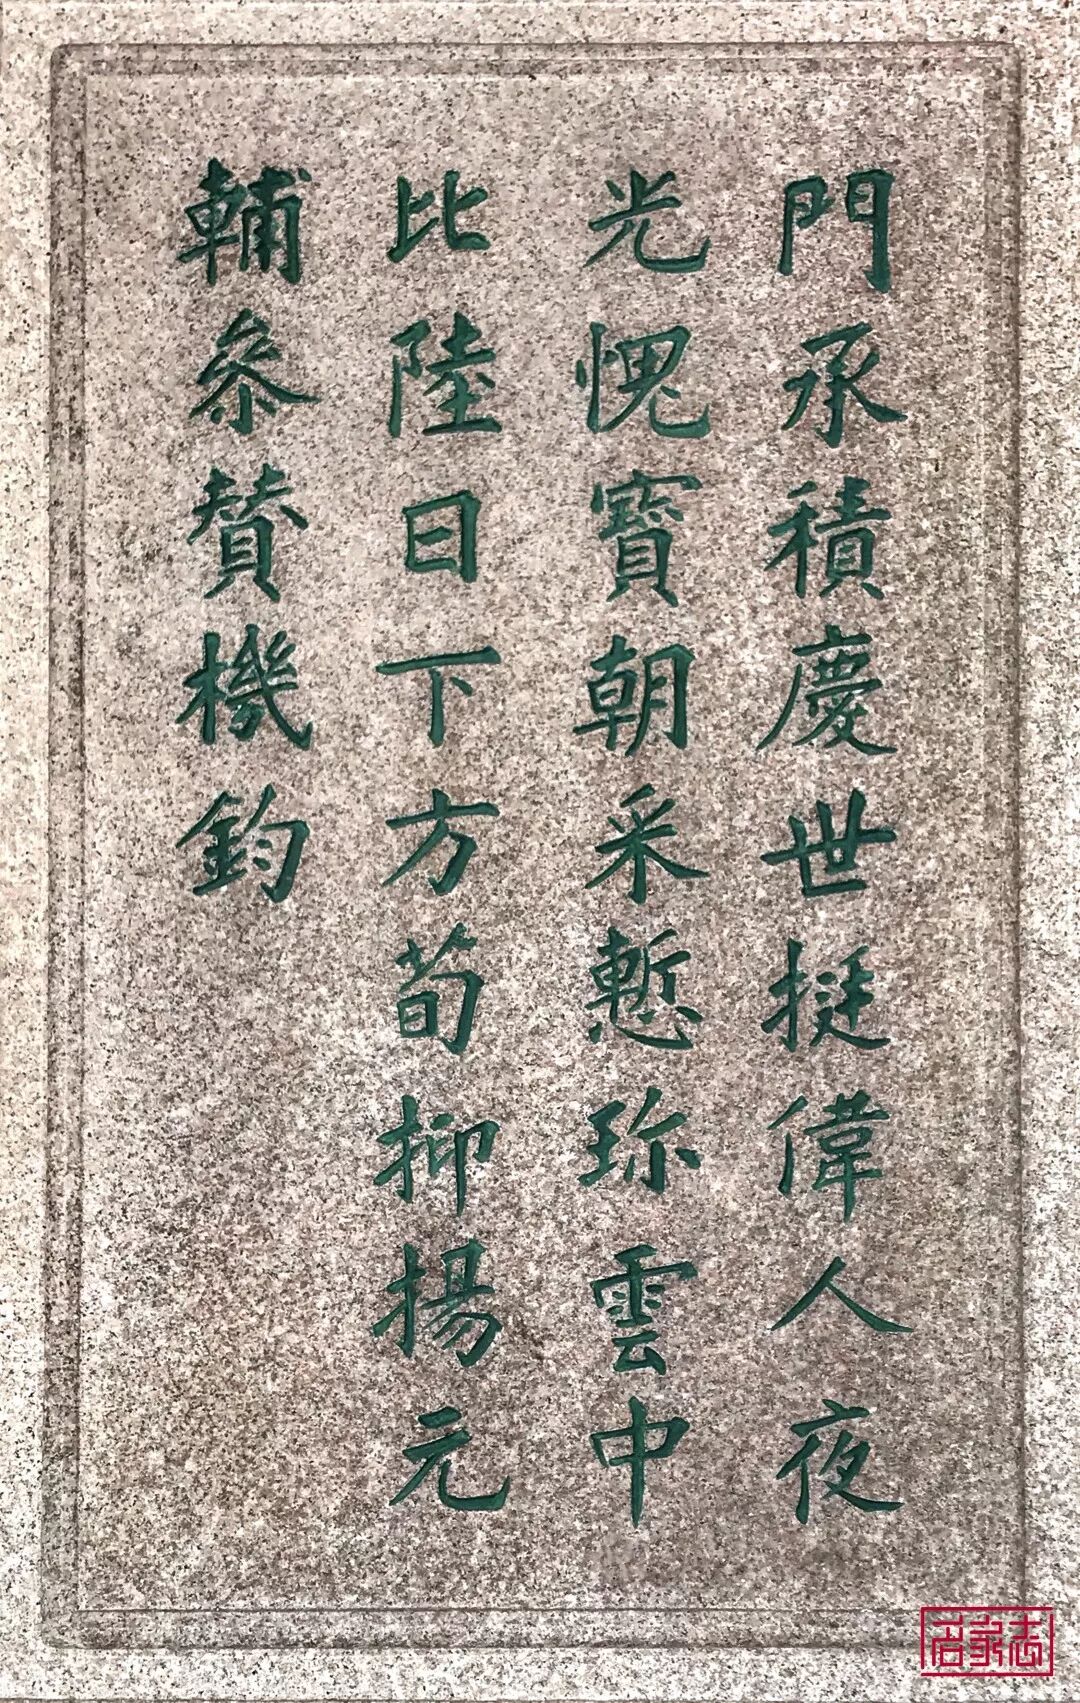 門承積慶世挺偉人夜
光愧寶朝采慙珎雲中
比陸日下方荀抑揚元
輔叅賛機鈞
名家志